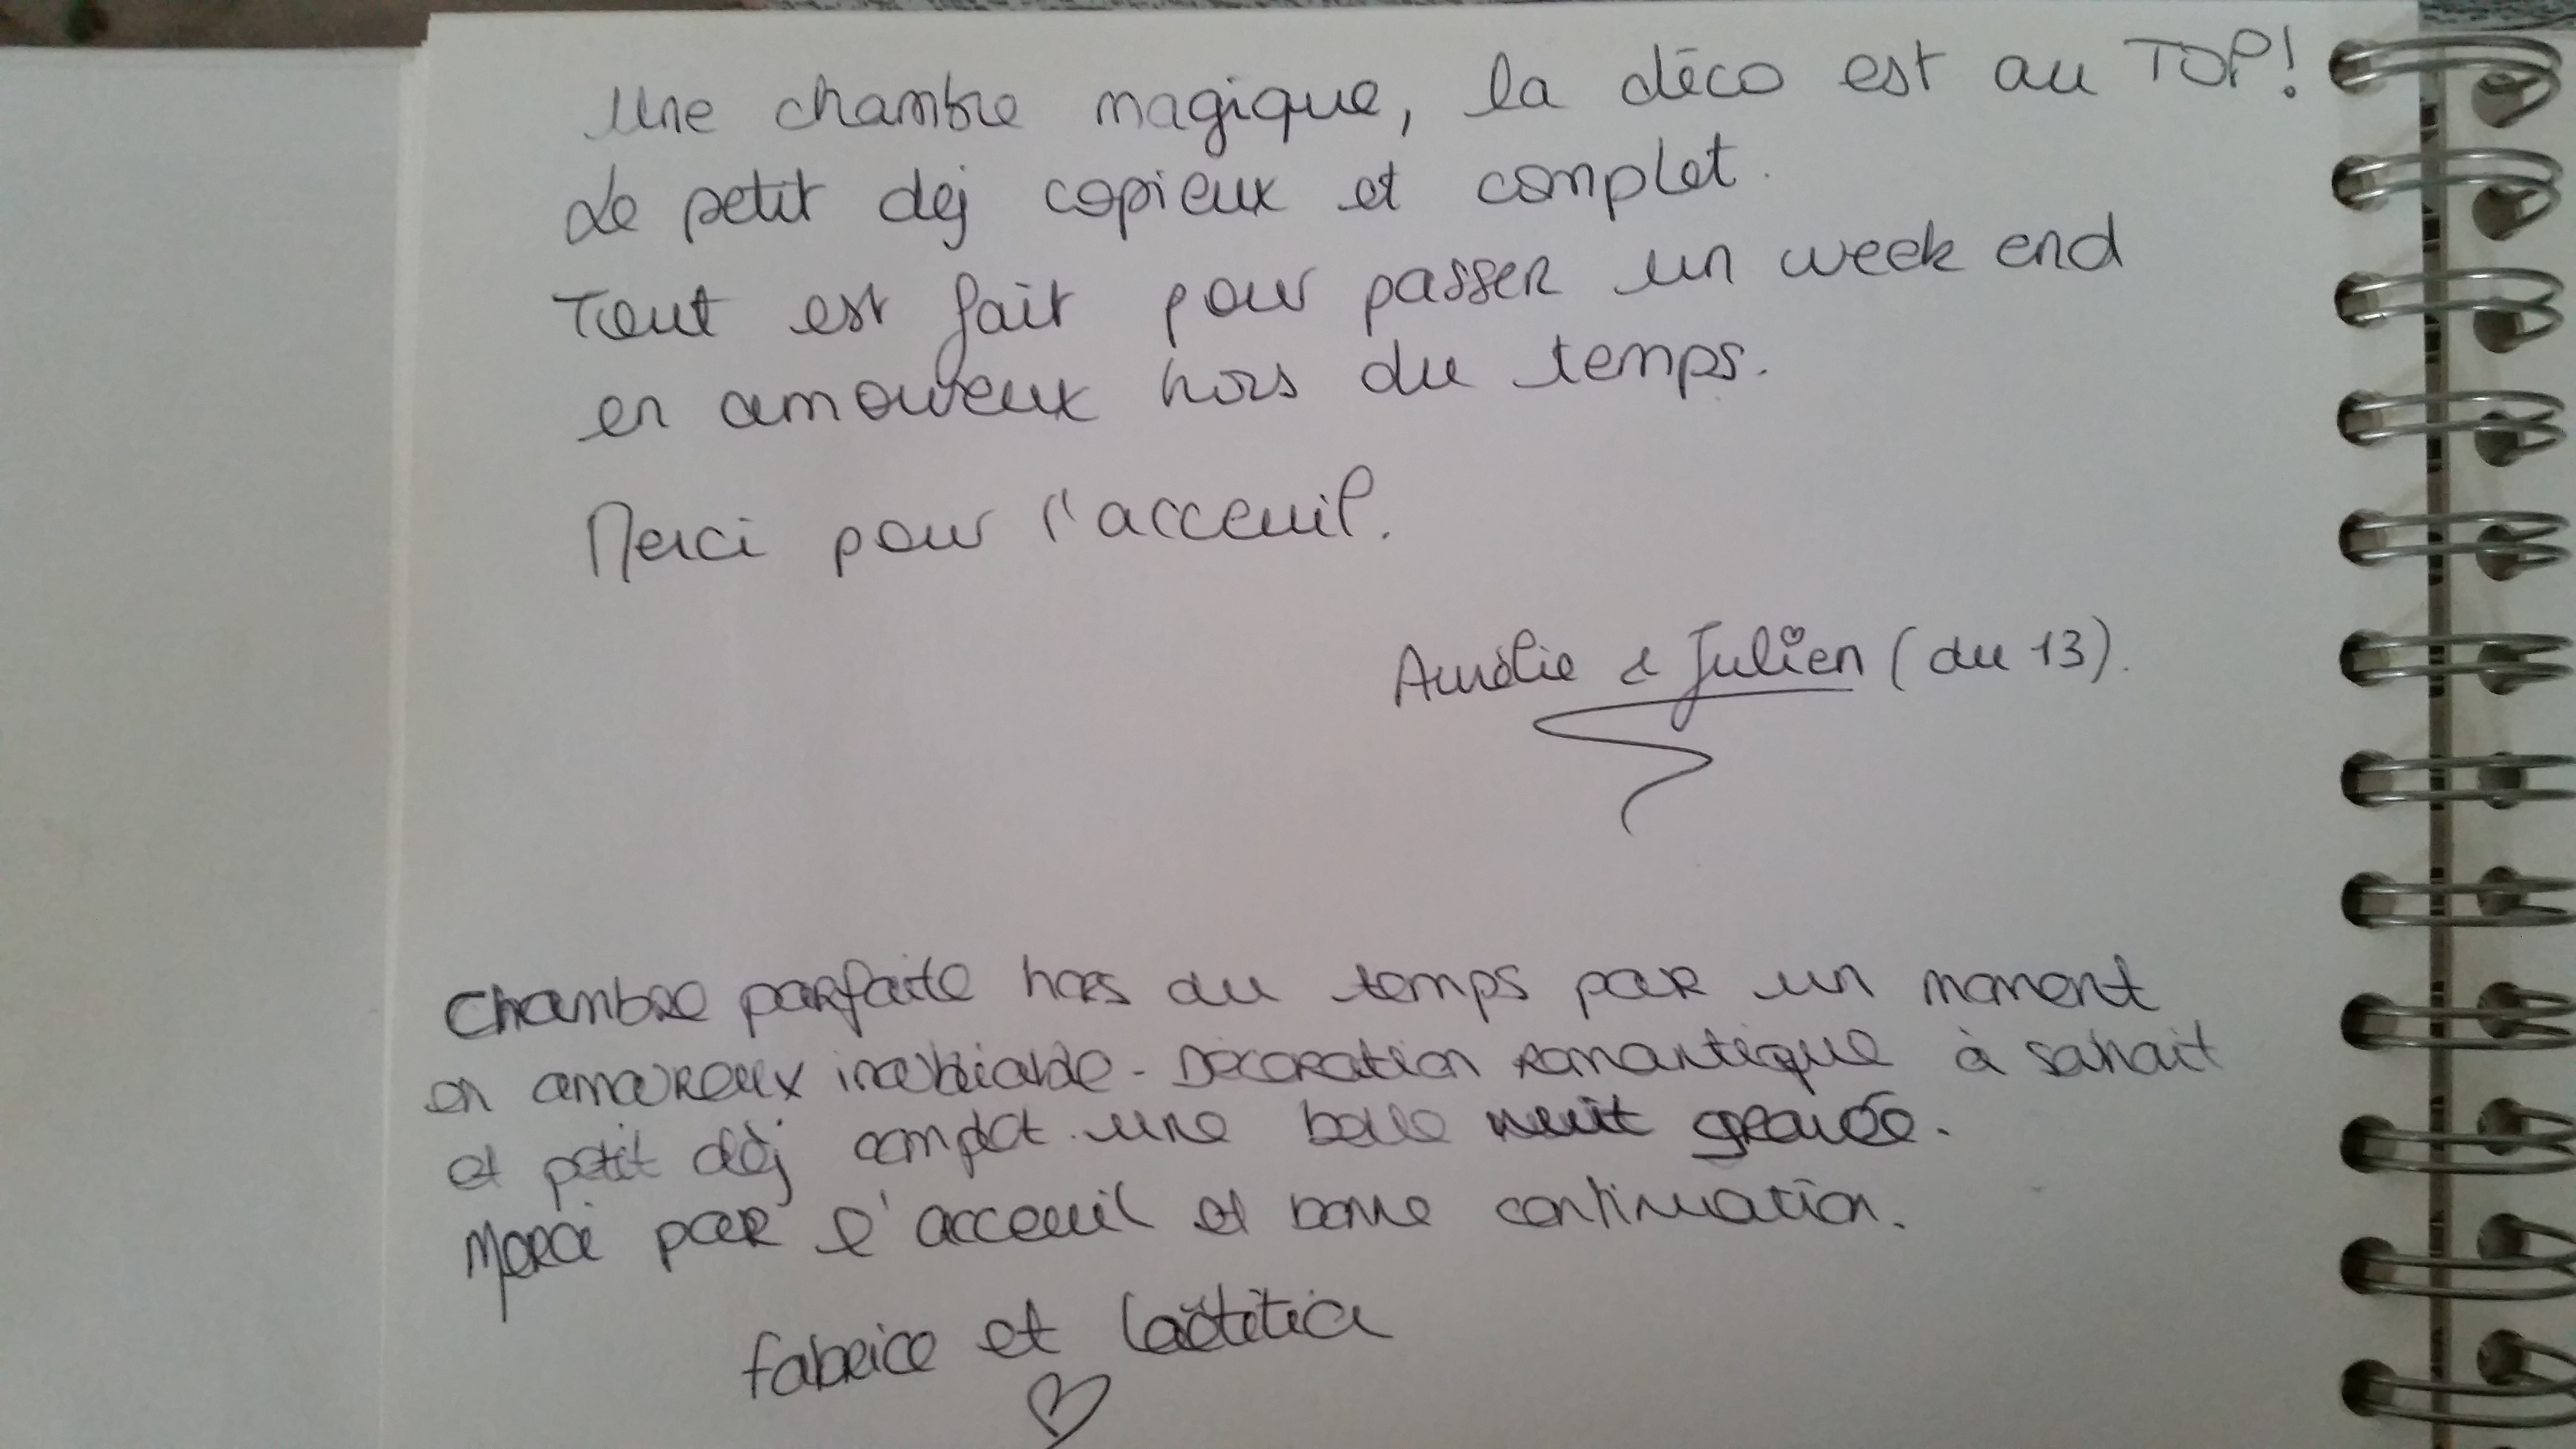 Une chambre magique, la déco est au TOP!
Le petit dej copieux et complet.
Tout est fait pour passer un week end
en amoureux hors du temps.
Merci pour l'acceuil.
Aurélie & Julien (du 13).
Chambre parfaite hors du temps pour un moment
en amoureux inoubliable. Décoration romantique à souhait
et petit déj complet. une belle nuit gravée.
Merci pour l'acceuil et bonne continuation.
fabrice et Laëtitia